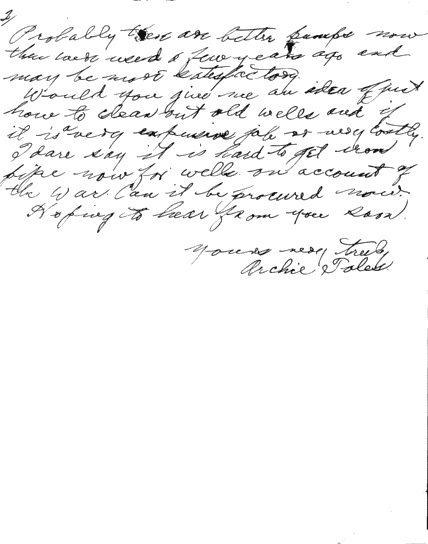 2/
Probably there are better pumps now
than were used a few years ago and
may be more satisfactory.
Would you give me an idea of just
how to clean out old wells and if
it is a very expensive job or very costly.
I dare say it is hard to get iron
pipe now for wells on account of
the War. Can it be procured now.
Hoping to hear from you soon.
Yours very truly
Archie